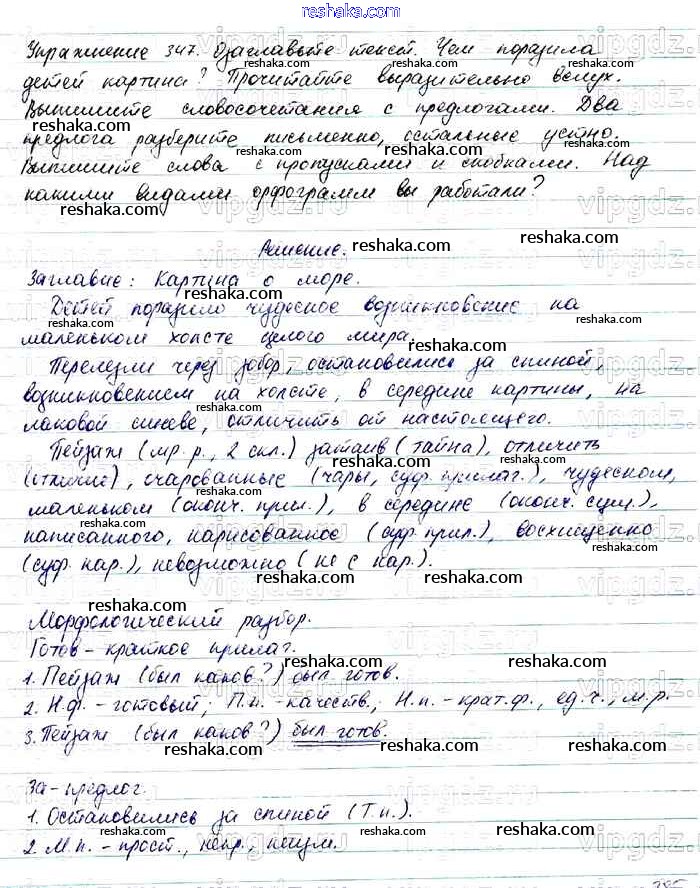 reshaka.com
Упражнение 347. Озаглавьте текст. Чем поразила
детей картина? Прочитайте выразительно вслух.
Выпишите словосочетания с предлогами. Два
предлога разберите письменно, остальные устно.
Выпишите слова с пропусками и скобками. Над
какими видами орфограмм вы работали?
Решение.
Заглавие: Картина о море.
Детей поразило чудесное возникновение на
маленьком холсте целого мира.
Перелезли через забор, остановились за спиной,
возникновением на холсте, в середине картины, на
лаковой синеве, отличить от настоящего.
Пейзаж (м.р.р., 2 скл.) затаив (тайна), отличить
(отличие), очарованные (чары, суф. прилаг.), чудесном,
маленьком (оконч. прил.), в середине (оконч. сущ.),
написанного, нарисованное (суф. прил.), восхищенно
(суф. нар.), невозможно (не с нар.).
Морфологический разбор.
Готов - краткое прилаг.
1. Пейзаж (был каков?) был готов.
2. Н.ф. - готовый; П.п. - качеств.; Н.п. - крат.ф., ед.ч., м.р.
3. Пейзаж (был каков?) был готов.
За - предлог.
1. Остановились за спиной (Т.п.).
2. М.п. - прост., непр., неизм.